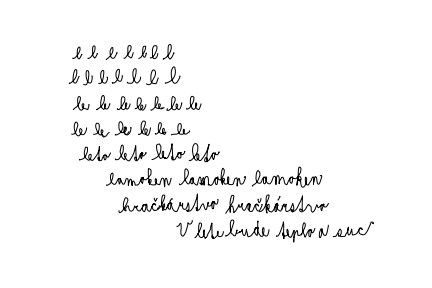 l l l l l l l
l l l l l l l
le le le le le le le
le le le le le le
leto leto leto leto
lamoken lamoken lamoken
hračkárstvo hračkárstvo
V lete bude teplo a suc